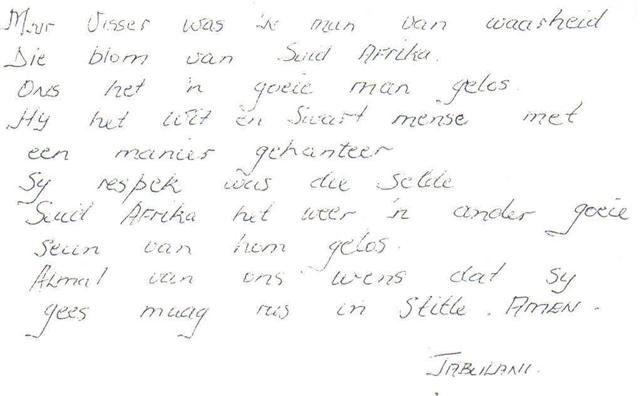 Mnr Visser was 'n man van waasheid
Die blom van Suid Afrika.
Ons het 'n goeie man gelos.
Hy het wit en Swart mense met
een manier gehanteer
Sy respek was die selde
Suid Afrika het weer 'n ander goeie
seun van hom gelos.
Almal van ons wens dat sy
gees maag rus in Stille. AMEN.
JABULANI.